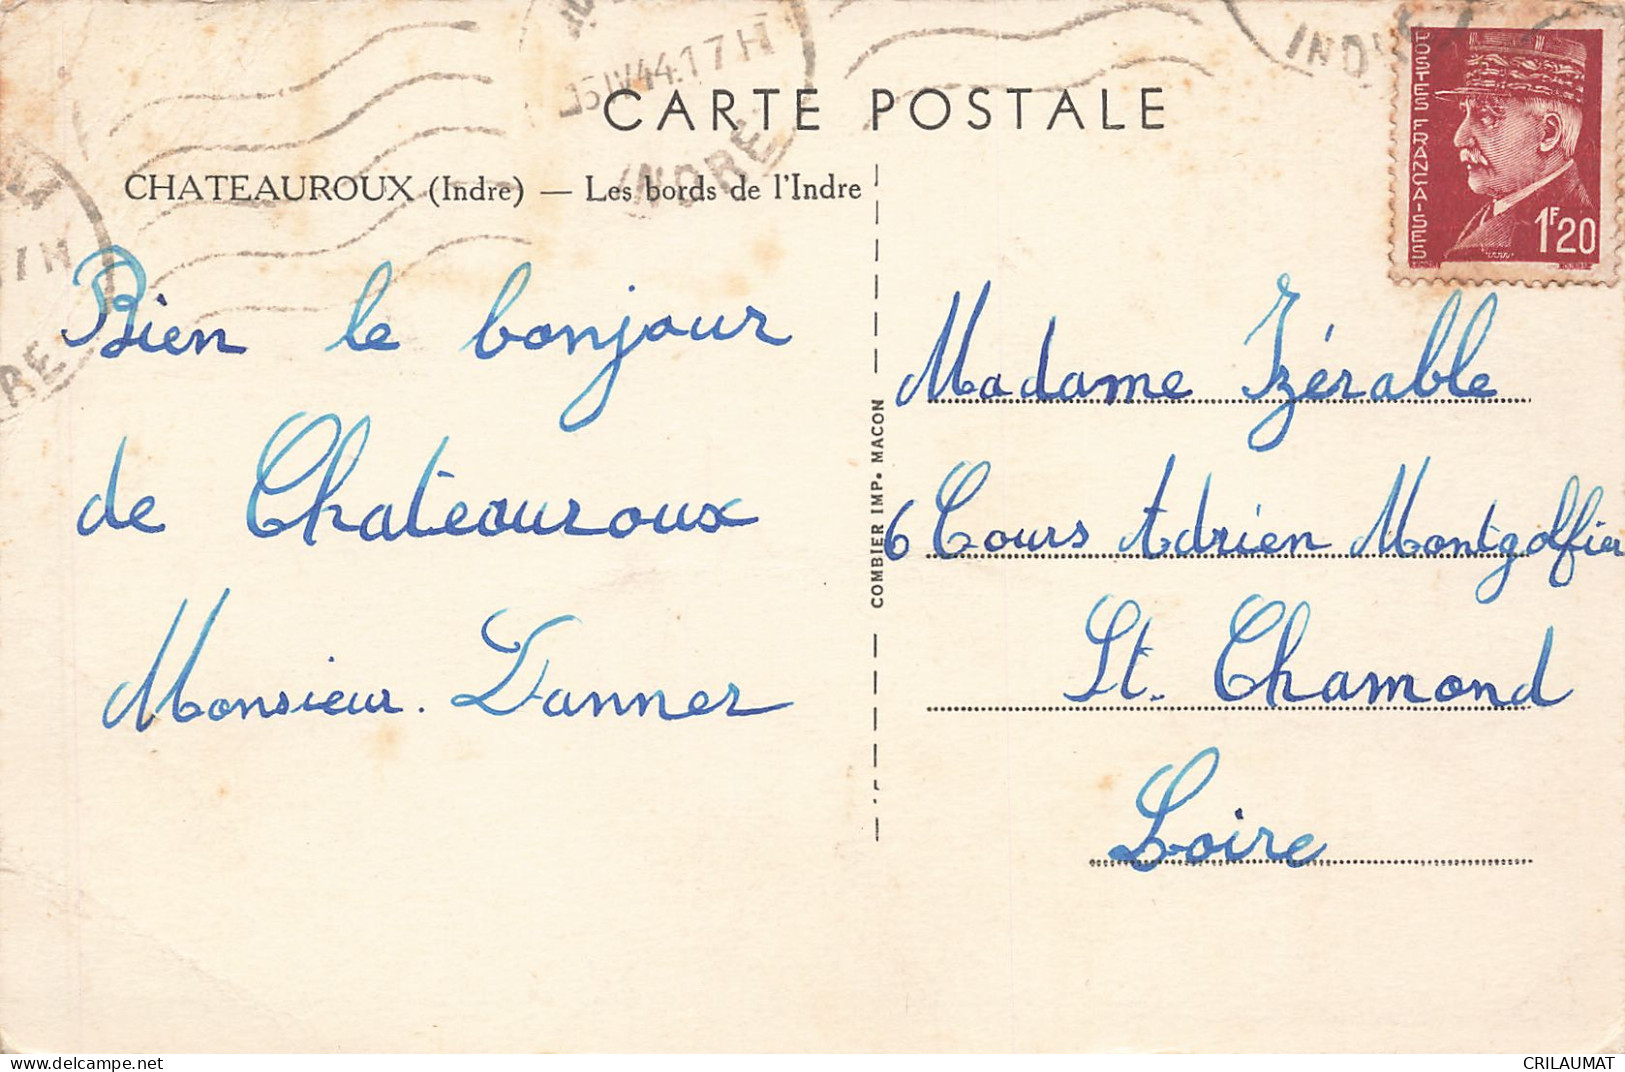 15 IV 44. 17H
INDRE
CARTE POSTALE
CHATEAUROUX (Indre) — Les bords de l'Indre
POSTES FRANÇAISES
1F20
Bien le bonjour
de Chateauroux
Monsieur. Danner
COMBIER IMP. MACON
Madame Izérable
6 Cours Adrien Montgolfier
St. Chamond
Loire
www.delcampe.net
CRILAUMAT